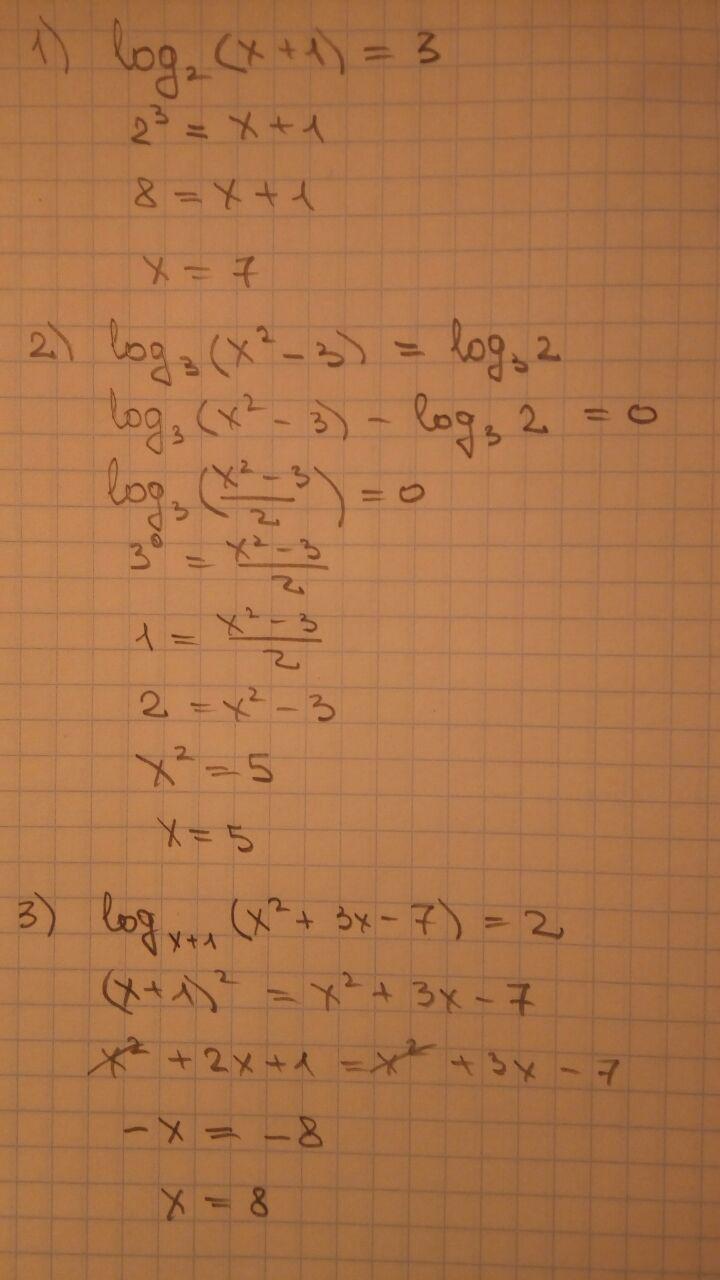 1) log₂(x+1) = 3
2³ = x+1
8 = x+1
x = 7
2) log₃(x²-3) = log₃2
log₃(x²-3) - log₃2 = 0
log₃((x²-3)/2) = 0
3⁰ = (x²-3)/2
1 = (x²-3)/2
2 = x²-3
x² = 5
x = 5
3) logₓ₊₁(x²+3x-7) = 2
(x+1)² = x²+3x-7
x²+2x+1 = x²+3x-7
-x = -8
x = 8